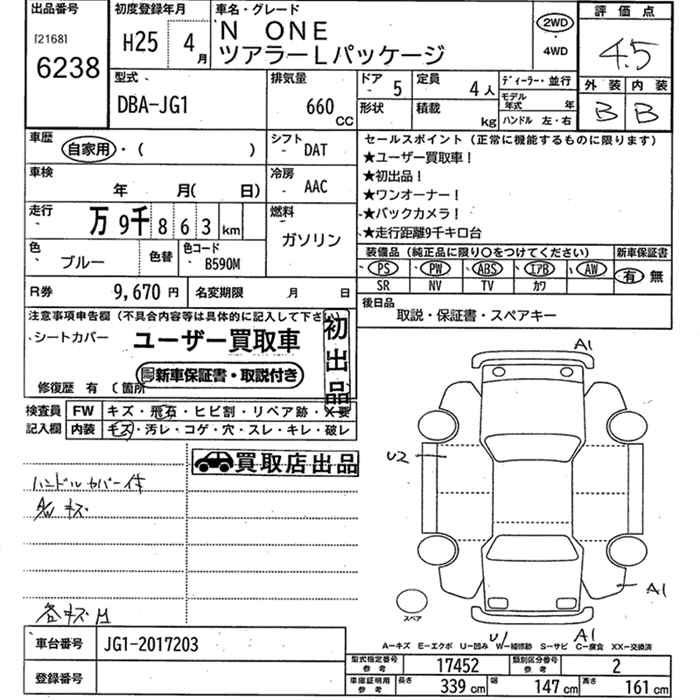 出品番号 初度登録年月 車名・グレード 評価点
[2168] 6238 H25 4月 N ONE ツアラーLパッケージ 2WD 4WD 4.5
型式 DBA-JG1 排気量 660 CC ドア 5 定員 4人 ディーラー・並行 外装 内装
形状 積載 kg モデル年式 年 ハンドル 左・右 B B
車歴 自家用・( ) シフト DAT セールスポイント (正常に機能するものに限ります)
★ユーザー買取車!
車検 年 月( 日) 冷房 AAC ★初出品!
★ワンオーナー!
走行 万9千863km 燃料 ガソリン ★バックカメラ!
★走行距離9千キロ台
色 ブルー 色替 色コード B590M 装備品 (純正品に限り○をつけてください) 新車保証書
PS PW ABS エアB AW 有 無
SR NV TV カワ
R券 9,670円 名変期限 月 日 後日品
取説・保証書・スペアキー
注意事項申告欄 (不具合内容等は具体的に記入して下さい)
シートカバー ユーザー買取車 初出品
新車保証書・取説付き
修復歴 有 (箇所
検査員 FW キズ・飛石・ヒビ割・リペア跡・X要
記入欄 内装 キズ・汚レ・コゲ・穴・スレ・キレ・破レ
買取店出品
ハンドルカバー付
A/W キズ
各キズ H
A1
U2
A1
スペア
U1 A1
A-キズ E-エクボ U-凹み W-補修跡 S-サビ C-腐食 XX-交換済
車台番号 JG1-2017203
型式指定番号 参考 17452 類別区分番号 参考 2
登録番号 車庫証明用 参考 長さ 339cm 幅 147cm 高さ 161cm